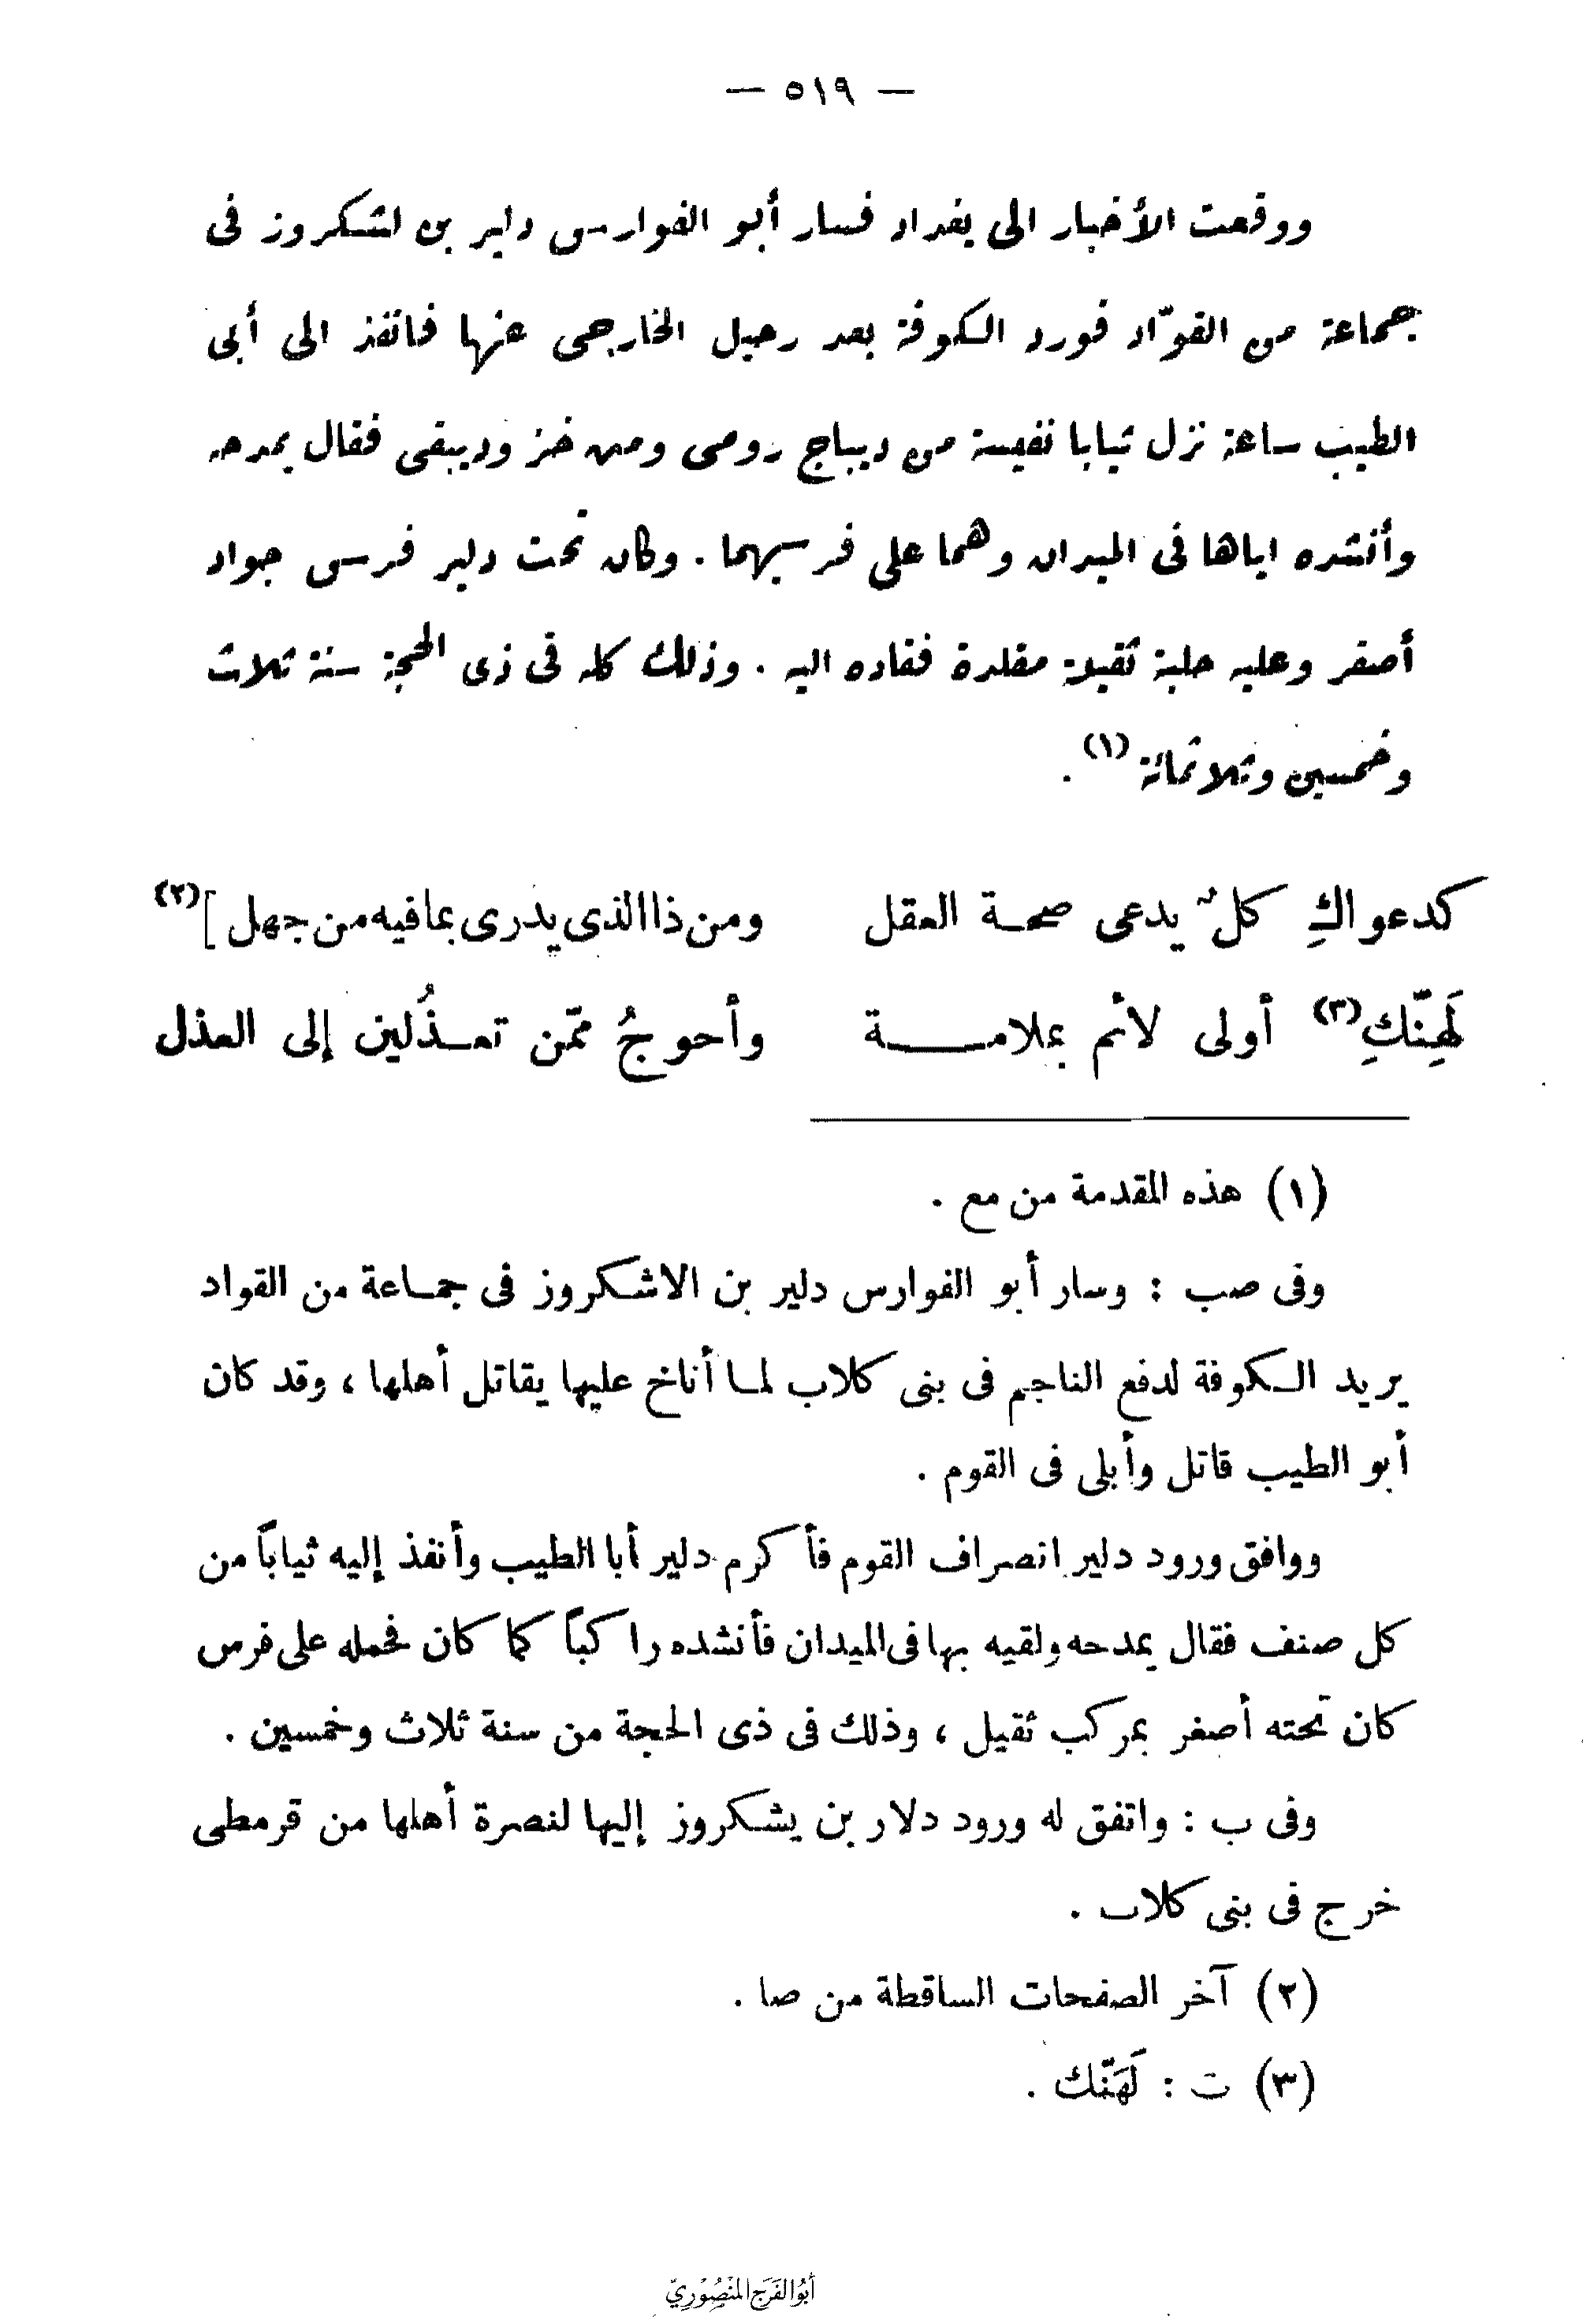 — ٥١٩ —
ووقعت الأخبار الى بغداد فسار أبو الفوارس دلير بن لشكروز فى
جماعة من القوّاد فورد الكوفة بعد رحيل الخارجى عنها فانفذ الى أبى
الطيب ساعة نزل ثيابا نفيسة من ديباج رومى ومن خز ودبيقى فقال يمدحه
وأنشده اياها فى الميدان وهما على فرسيهما . وكان تحت دلير فرس جواد
أصفر وعليه حلية ثقيلة مقلدة فقاده اليه . وذلك كله فى ذى الحجة سنة ثلاث
وخمسين وثلاثمائة (١) .
كدعواكِ كلٌ يدعى صحة العقل ومن ذا الذى يدرى بما فيه من جهل ](٢)
لَهِنّكِ(٣) أولى لأئم بملامة وأحوجُ ممّن تعذُلين إلى العذل
(١) هذه المقدمة من مع .
وفى صب : وسار أبو الفوارس دلير بن الاشكروز فى جماعة من القواد
يريد الكوفة لدفع الناجم فى بنى كلاب لما أناخ عليها يقاتل أهلها ، وقد كان
أبو الطيب قاتل وأبلى فى القوم .
ووافق ورود دلير انصراف القوم فأكرم دلير أبا الطيب وأنفذ إليه ثياباً من
كل صنف فقال يمدحه ولقيه بها فى الميدان فأنشده راكباً كما كان فحمله على فرس
كان تحته أصغر بمركب ثقيل ، وذلك فى ذى الحجة من سنة ثلاث وخمسين .
وفى ب : واتفق له ورود دلار بن يشكروز إليها لنصرة أهلها من قرمطى
خرج فى بنى كلاب .
(٢) آخر الصفحات الساقطة من صا .
(٣) ت : لَهَنّك .
أبُو الفَرَج المَنْصُوْرِيّ